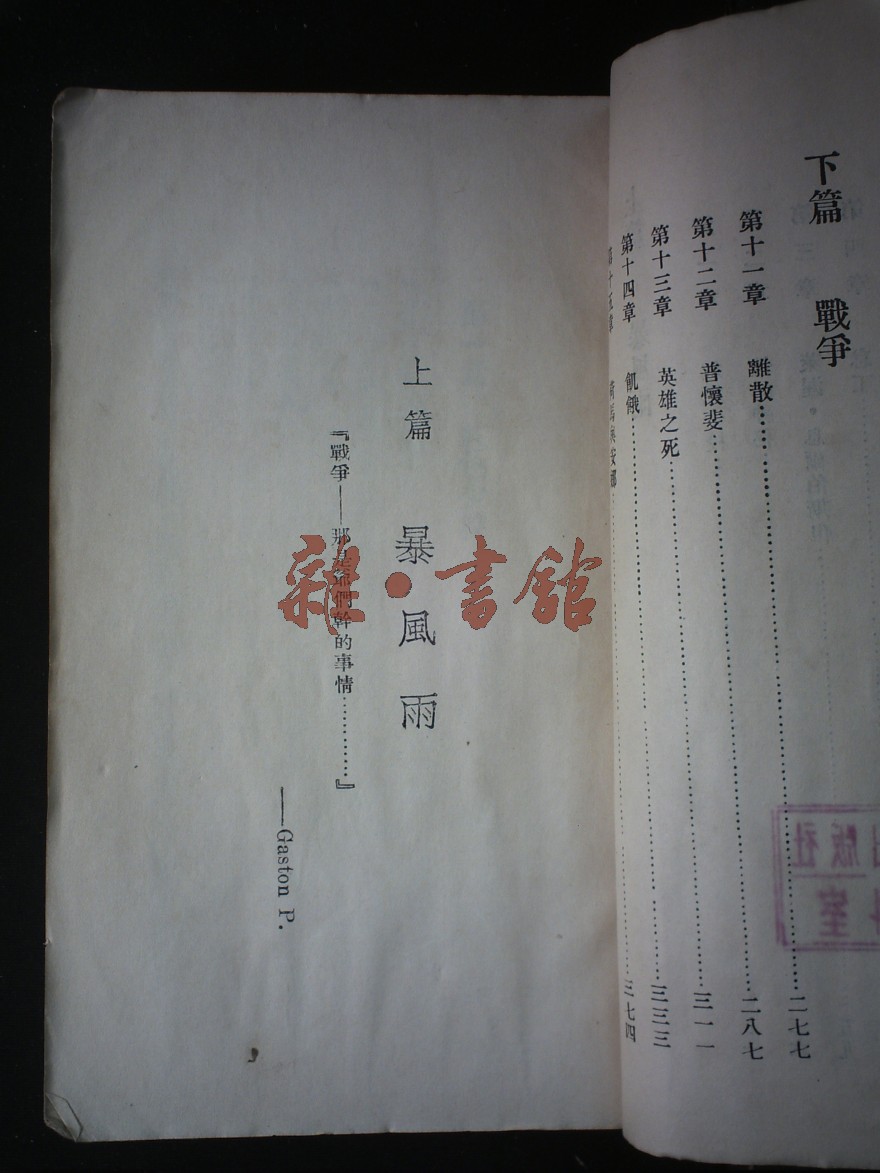 下篇 戰爭
第十一章 離散……二七七
第十二章 普懷斐……二八七
第十三章 英雄之死……三一一
第十四章 飢餓……三三三
三七四
上篇 暴風雨
『戰爭——那是他們幹的事情…………』
——Gaston P.
雜·書館
出版社
料室